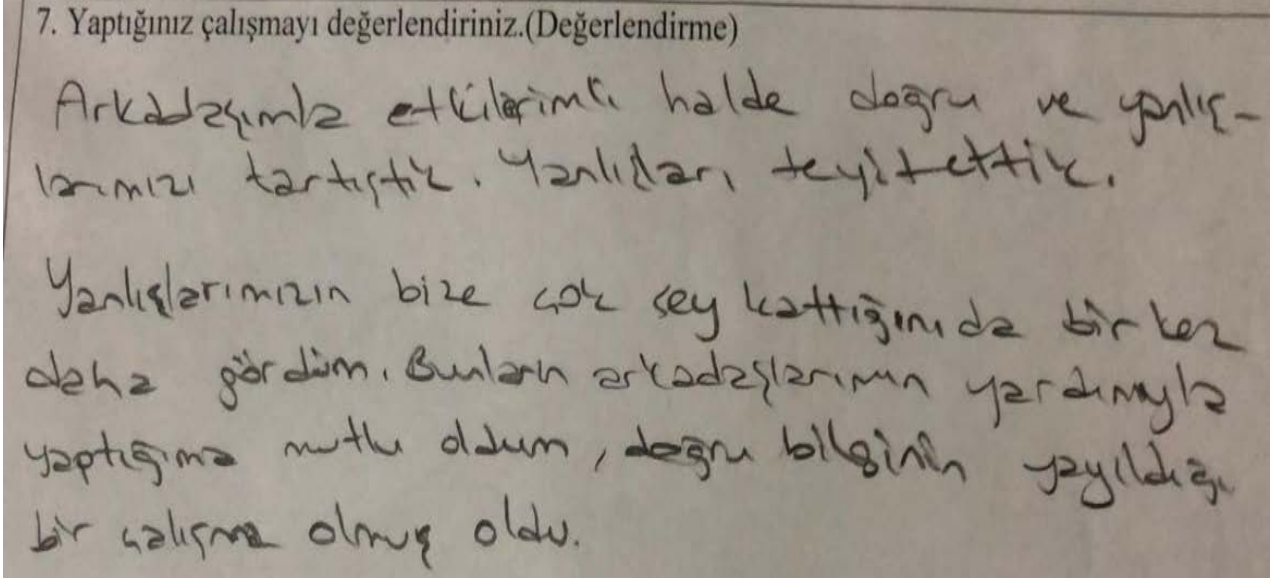 7. Yaptığınız çalışmayı değerlendiriniz.(Değerlendirme)
Arkadaşımla etkileşimli halde doğru ve yanlış-
larımızı tartıştık. Yanlışları teyit ettik.
Yanlışlarımızın bize çok şey kattığını da bir kez
daha gördüm. Bunların arkadaşlarımın yardımıyla
yaptığıma mutlu oldum, doğru bilginin yayıldığı
bir çalışma olmuş oldu.